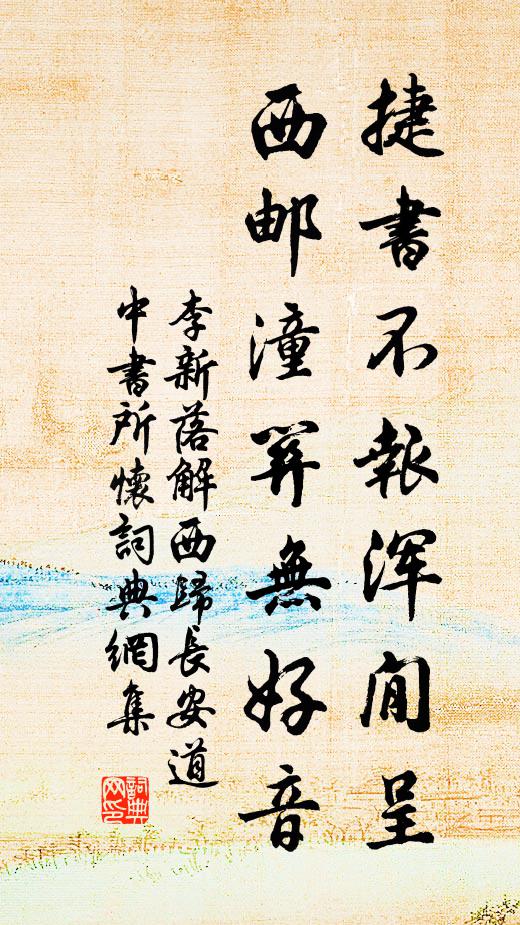 捷書不報浑閒呈
西邮潼關無好音
李新落解西歸長安道
中書所懷詞典網集
詞典
网印